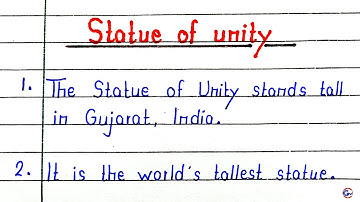 Statue of unity
1. The Statue of Unity stands tall
in Gujarat, India.
2. It is the world's tallest statue.